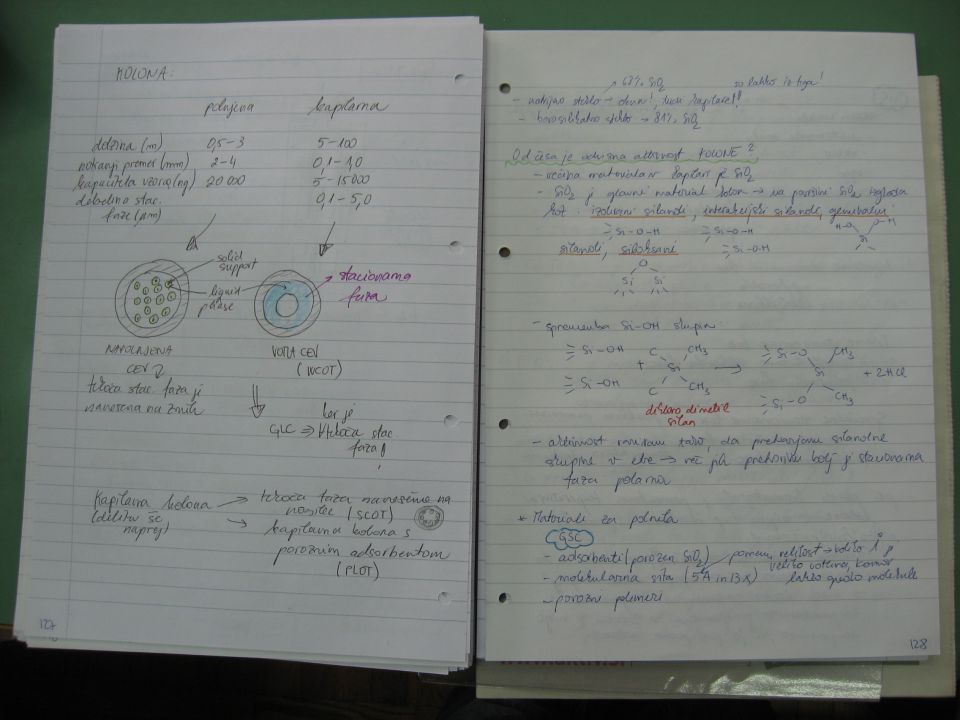 KOLONA:
polnjena kapilarna
dolžina (m) 0,5-3 5-100
notranji premer (mm) 2-4 0,1-1,0
kapaciteta vzorca (ng) 20 000 5-15000
debelina stac. 0,1-5,0
faze (μm)
solid
support
liquid
phase
stacionarna
faza
NAPOLNJENA
CEV
tekoča stac. faza je
nanesena na zrnih
VOTLA CEV
(WCOT)
ker je
GLC ⇒ tekoča stac.
faza!
Kapilarna kolona → tekoča faza nanesena na
(delitu se nosilec (SCOT)
naprej) → kapilarna kolona s
poroznim adsorbentom
(PLOT)
127
67% SiO2
- natrijevo steklo → drun!, tudi kapilare!!
so lahko iz tega!
- borosilikatno steklo → 81% SiO2
Od česa je odvisna aktivnost KOLONE?
- večina materialov kapilar je SiO2
- SiO2 je glavni material kolon → na površini SiO2 izgleda
kot: izolirani silanoli, interakcijski silanoli, geminalni
Si-O-H Si-O-H H-O O-H
Si
silanoli, siloksani Si-O-H
O
Si Si
- sprememba Si-OH skupin
Si-OH C CH3 Si-O CH3
+ Si → Si + 2HCl
Si-OH C CH3 Si-O CH3
dikloro dimetil
silan
- aktivnost zmanjšam tako, da pretvarjamo silanolne
skupine v etre → več jih pretvorimo bolj je stacionarna
faza polarna
* Materiali za polnila
GSC
- adsorbenti (porozen SiO2)
pomeni velikost → koliko Å je
- molekularna sita (5A in 13X)
velika votlina, kamor
lahko gredo molekule
- porozni polimeri
128